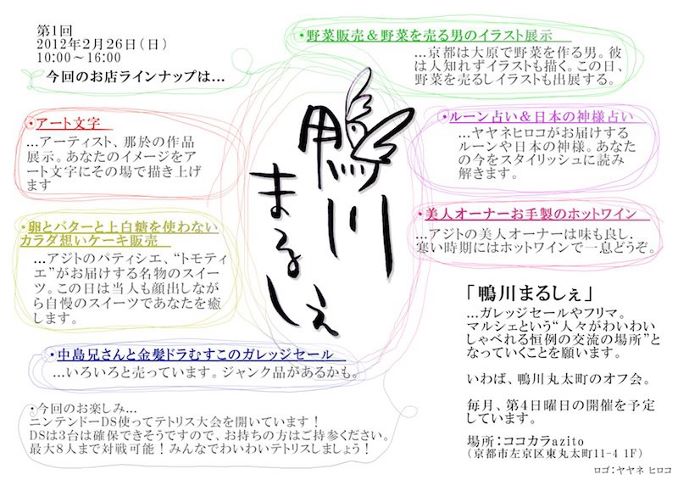 第1回
2012年2月26日(日)
10:00～16:00
今回のお店ラインナップは…
・野菜販売＆野菜を売る男のイラスト展示
…京都は大原で野菜を作る男。彼
は人知れずイラストも描く。この日、
野菜を売るしイラストも出展する。
・アート文字
…アーティスト、那於の作品
展示。あなたのイメージをア
ート文字にその場で描き上げ
ます
・ルーン占い＆日本の神様占い
…ヤヤネヒロコがお届けする
ルーンや日本の神様。あなた
の今をスタイリッシュに読み
解きます。
鴨川
まるしぇ
・卵とバターと上白糖を使わない
カラダ想いケーキ販売
…アジトのパティシエ、“トモティ
エ”がお届けする名物のスイー
ツ。この日は当人も顔出しなが
ら自慢のスイーツであなたを癒
します。
・美人オーナーお手製のホットワイン
…アジトの美人オーナーは味も良し．
寒い時期にはホットワインで一息どうぞ。
・中島兄さんと金髪ドラむすこのガレッジセール
…いろいろと売っています。ジャンク品があるかも。
・今回のお楽しみ…
ニンテンドーDS使ってテトリス大会を開いています！
DSは3台は確保できそうですので、お持ちの方はご持参ください。
最大8人まで対戦可能！みんなでわいわいテトリスしましょう！
「鴨川まるしぇ」
…ガレッジセールやフリマ。
マルシェという“人々がわいわい
しゃべれる恒例の交流の場所”と
なっていくことを願います。
いわば、鴨川丸太町のオフ会。
毎月、第4日曜日の開催を予定
しています。
場所：ココカラazito
(京都市左京区東丸太町11-4 1F)
ロゴ：ヤヤネ ヒロコ